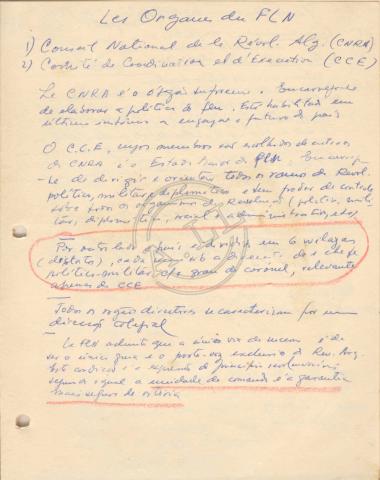 Les Organes du FLN
1) Conseil National de la Révol. Alg. (CNRA)
2) Comité de Coordination et d'Execution (CCE)
Le CNRA é o órgão supremo. Encarregado
de elaborar a política do FLN. Está habilitado em
última instância a engajar o futuro do país
O C.C.E, cujos membros são escolhidos dentro
do CNRA é o Estado Maior do FLN. Encarrega-
se de dirigir e orientar todos os ramos da Revol.
política, militar e diplomática e tem poder de controle
sobre todos os organismos da Revolução (política, mili-
tar, diplomática, social e administrativa, etc)
Por outro lado o país é dividido em 6 wilayas
(distritos), cada um sob a direcção de um chefe
político-militar c/o grau de coronel, relevante
apenas do CCE
Todos os orgãos directivos se caracterizam por uma
direcção colegial
Le FLN admite que a única via de sucesso é de
ser o único guia e o porta-voz exclusivo da Rev. Arg.
Isto conduz ao princípio revolucionário
segundo o qual a unidade de comando é a garantia
mais segura de vitória